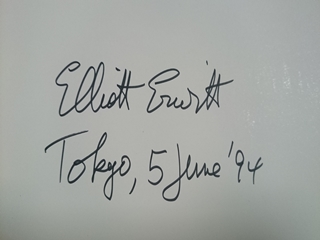 Elliott Erwitt
Tokyo, 5 June '94